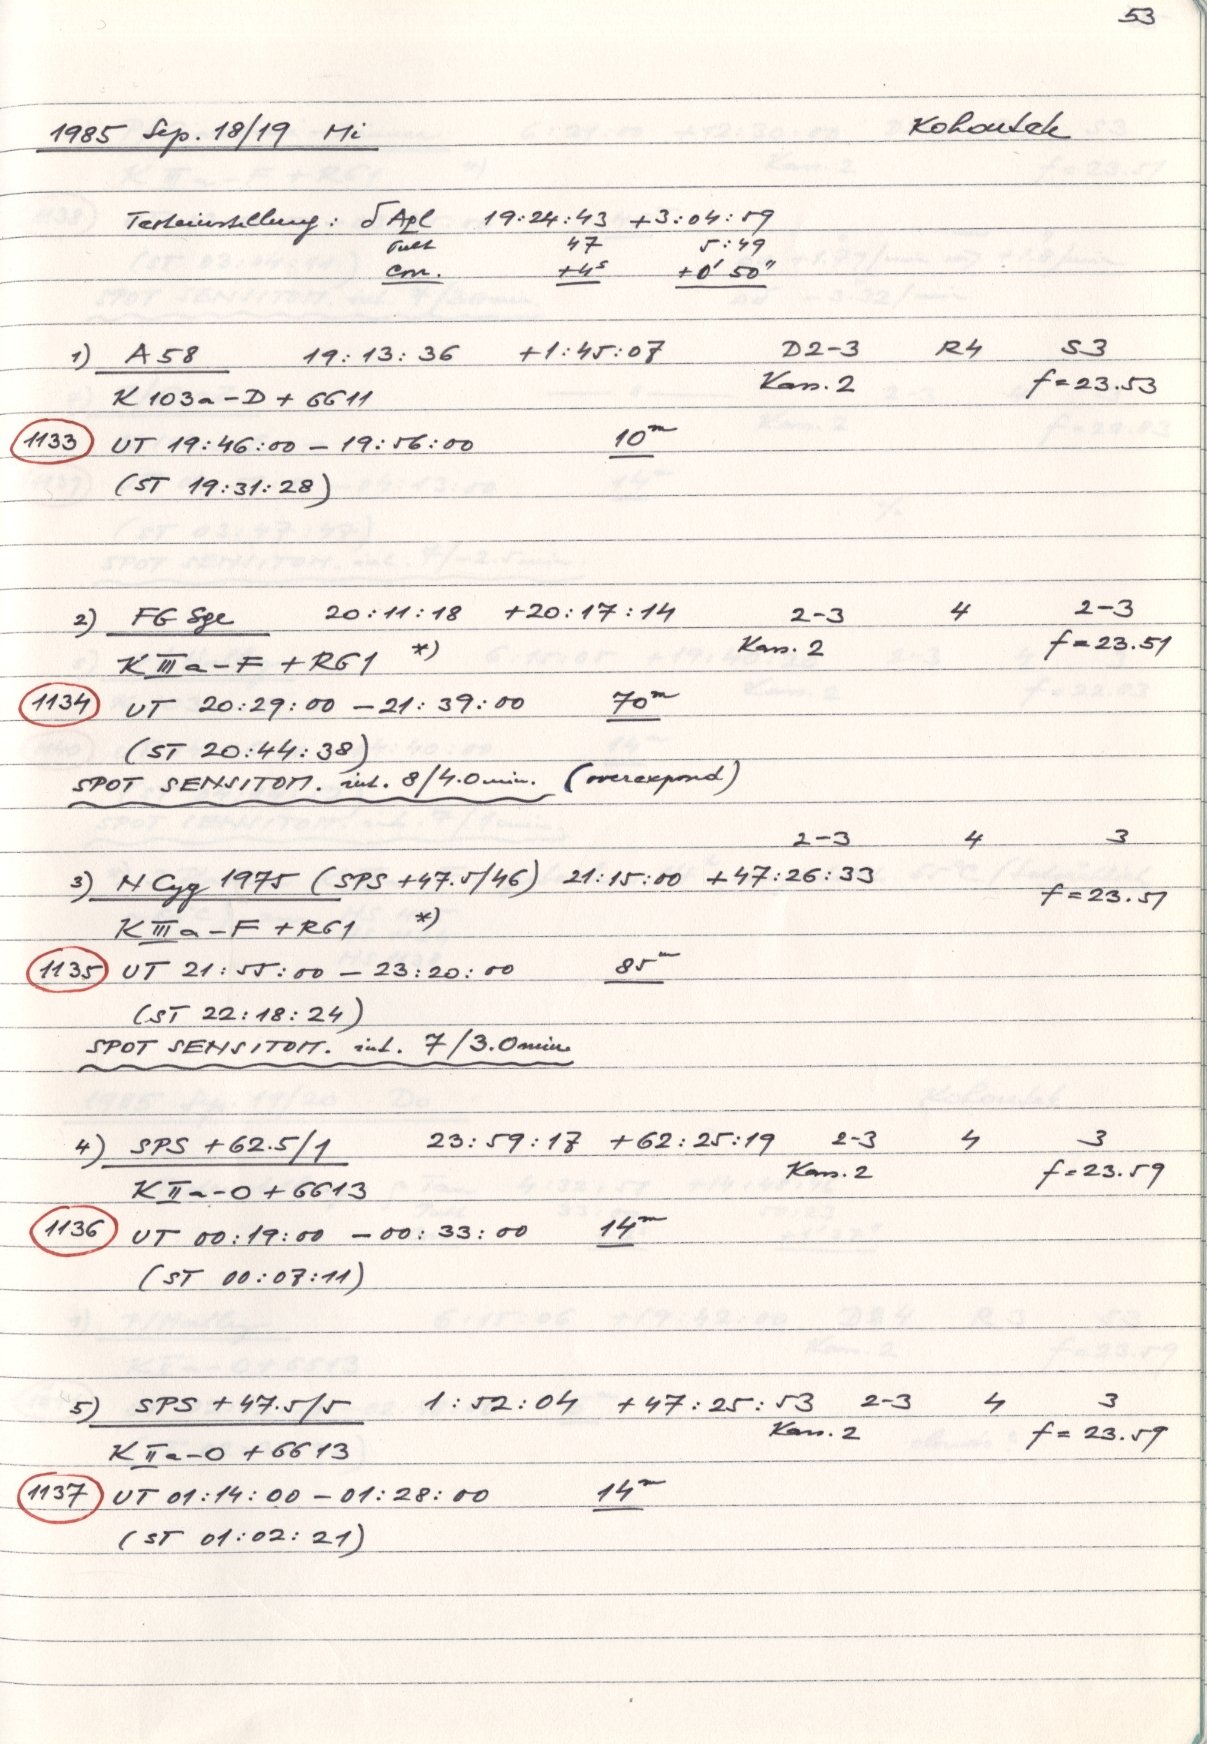 53
1985 Sep. 18/19 Mi Kohoutek
Testeinstellung: δ Aql 19:24:43 +3:04:59
Pult 47 5:49
Corr. +4ˢ +0' 50"
1) A 58 19:13:36 +1:45:07 D2-3 R4 S3
Kass. 2 f=23.53
K 103a-D + GG11
1133 UT 19:46:00 - 19:56:00 10ᵐ
(ST 19:31:28)
2) FG Sge 20:11:18 +20:17:14 2-3 4 2-3
K IIIa-F + RG1 *) Kass. 2 f=23.51
1134 UT 20:29:00 - 21:39:00 70ᵐ
(ST 20:44:38)
SPOT SENSITOM. int. 8/4.0 min. (overexposed)
2-3 4 3
3) N Cyg 1975 (SPS +47.5/46) 21:15:00 +47:26:33 f=23.51
K IIIa-F + RG1 *)
1135 UT 21:55:00 - 23:20:00 85ᵐ
(ST 22:18:24)
SPOT SENSITOM. int. 7/3.0 min
4) SPS +62.5/1 23:59:17 +62:25:19 2-3 4 3
Kass. 2 f=23.59
K IIa-O + GG13
1136 UT 00:19:00 - 00:33:00 14ᵐ
(ST 00:07:11)
5) SPS +47.5/5 1:52:04 +47:25:53 2-3 4 3
Kass. 2 f=23.59
K IIa-O + GG13
1137 UT 01:14:00 - 01:28:00 14ᵐ
(ST 01:02:21)